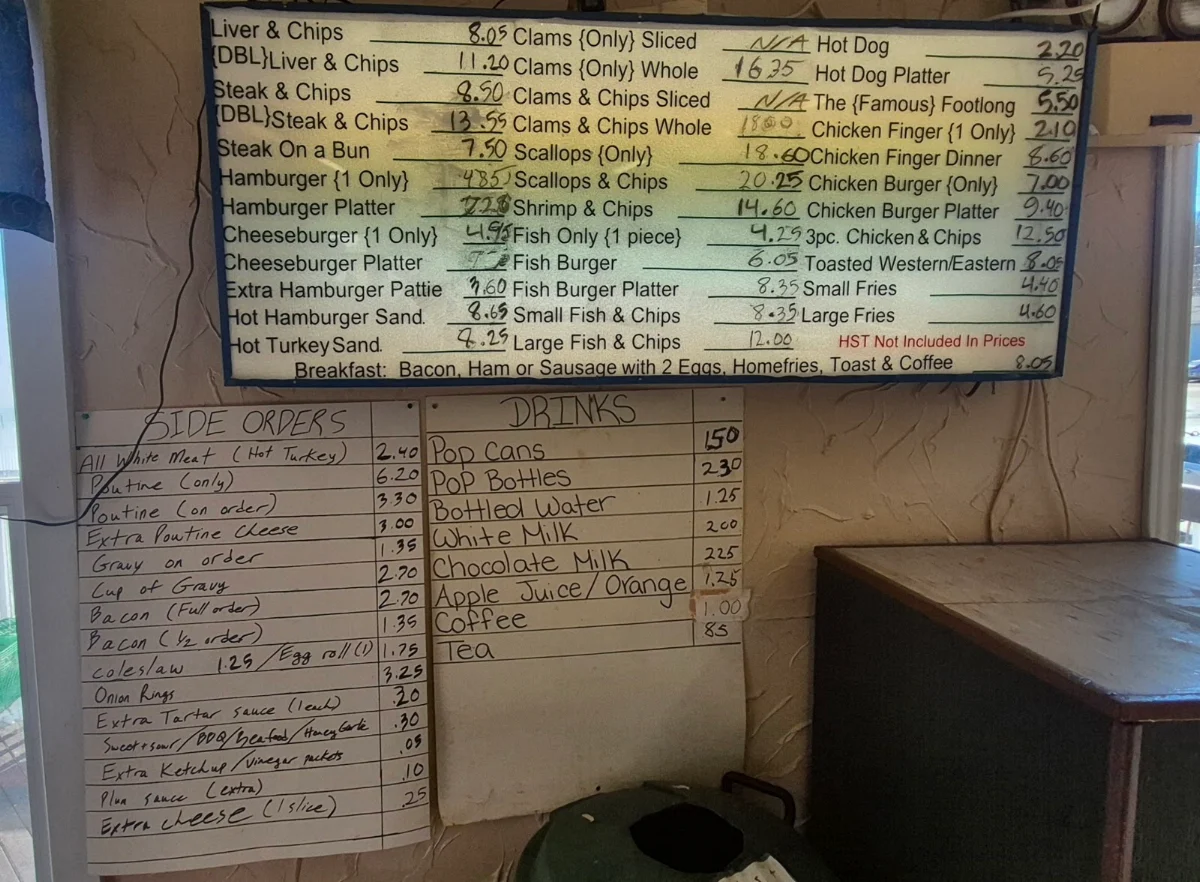 Liver & Chips 8.05
{DBL}Liver & Chips 11.20
Steak & Chips 8.50
{DBL}Steak & Chips 13.55
Steak On a Bun 7.50
Hamburger {1 Only} 4.85
Hamburger Platter
Cheeseburger {1 Only} 4.95
Cheeseburger Platter
Extra Hamburger Pattie 3.60
Hot Hamburger Sand. 8.65
Hot Turkey Sand. 8.25
Clams {Only} Sliced N/A
Clams {Only} Whole 16.35
Clams & Chips Sliced N/A
Clams & Chips Whole 18.00
Scallops {Only} 18.60
Scallops & Chips 20.25
Shrimp & Chips 14.60
Fish Only {1 piece} 4.25
Fish Burger 6.05
Fish Burger Platter 8.35
Small Fish & Chips 8.35
Large Fish & Chips 12.00
Hot Dog 2.20
Hot Dog Platter 5.25
The {Famous} Footlong 5.50
Chicken Finger {1 Only} 2.10
Chicken Finger Dinner 8.60
Chicken Burger {Only} 7.00
Chicken Burger Platter 9.40
3pc. Chicken & Chips 12.50
Toasted Western/Eastern 8.05
Small Fries 4.40
Large Fries 4.60
HST Not Included In Prices
Breakfast: Bacon, Ham or Sausage with 2 Eggs, Homefries, Toast & Coffee 8.05
SIDE ORDERS
All White Meat (Hot Turkey) 2.40
Poutine (only) 6.20
Poutine (on order) 3.30
Extra Poutine Cheese 3.00
Gravy on order 1.35
Cup of Gravy 2.70
Bacon (Full order) 2.70
Bacon (1/2 order) 1.35
coleslaw 1.25 / Egg roll (1) 1.75
Onion Rings 3.25
Extra Tartar sauce (1 each) .20
Sweet + sour / BBQ / Seafood / Honey Garlic .30
Extra Ketchup / Vinegar packets .05
Plum sauce (extra) .10
Extra cheese (1 slice) .25
DRINKS
Pop Cans 150
Pop Bottles 230
Bottled Water 1.25
White Milk 200
Chocolate Milk 225
Apple Juice/Orange 1.25
Coffee 1.00
Tea 85